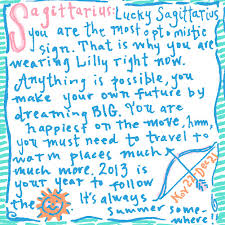 Sagittarius: Lucky Sagittarius
you are the most optomistic
sign. That is why you are
wearing Lilly right now.
Anything is possible, you
make your own future by
dreaming BIG. You are
happiest on the move, hmm,
you must need to travel to
warm places much
much more. 2013 is
your year to follow
the It's always
summer some-
where!
Nov 22 Dec 21